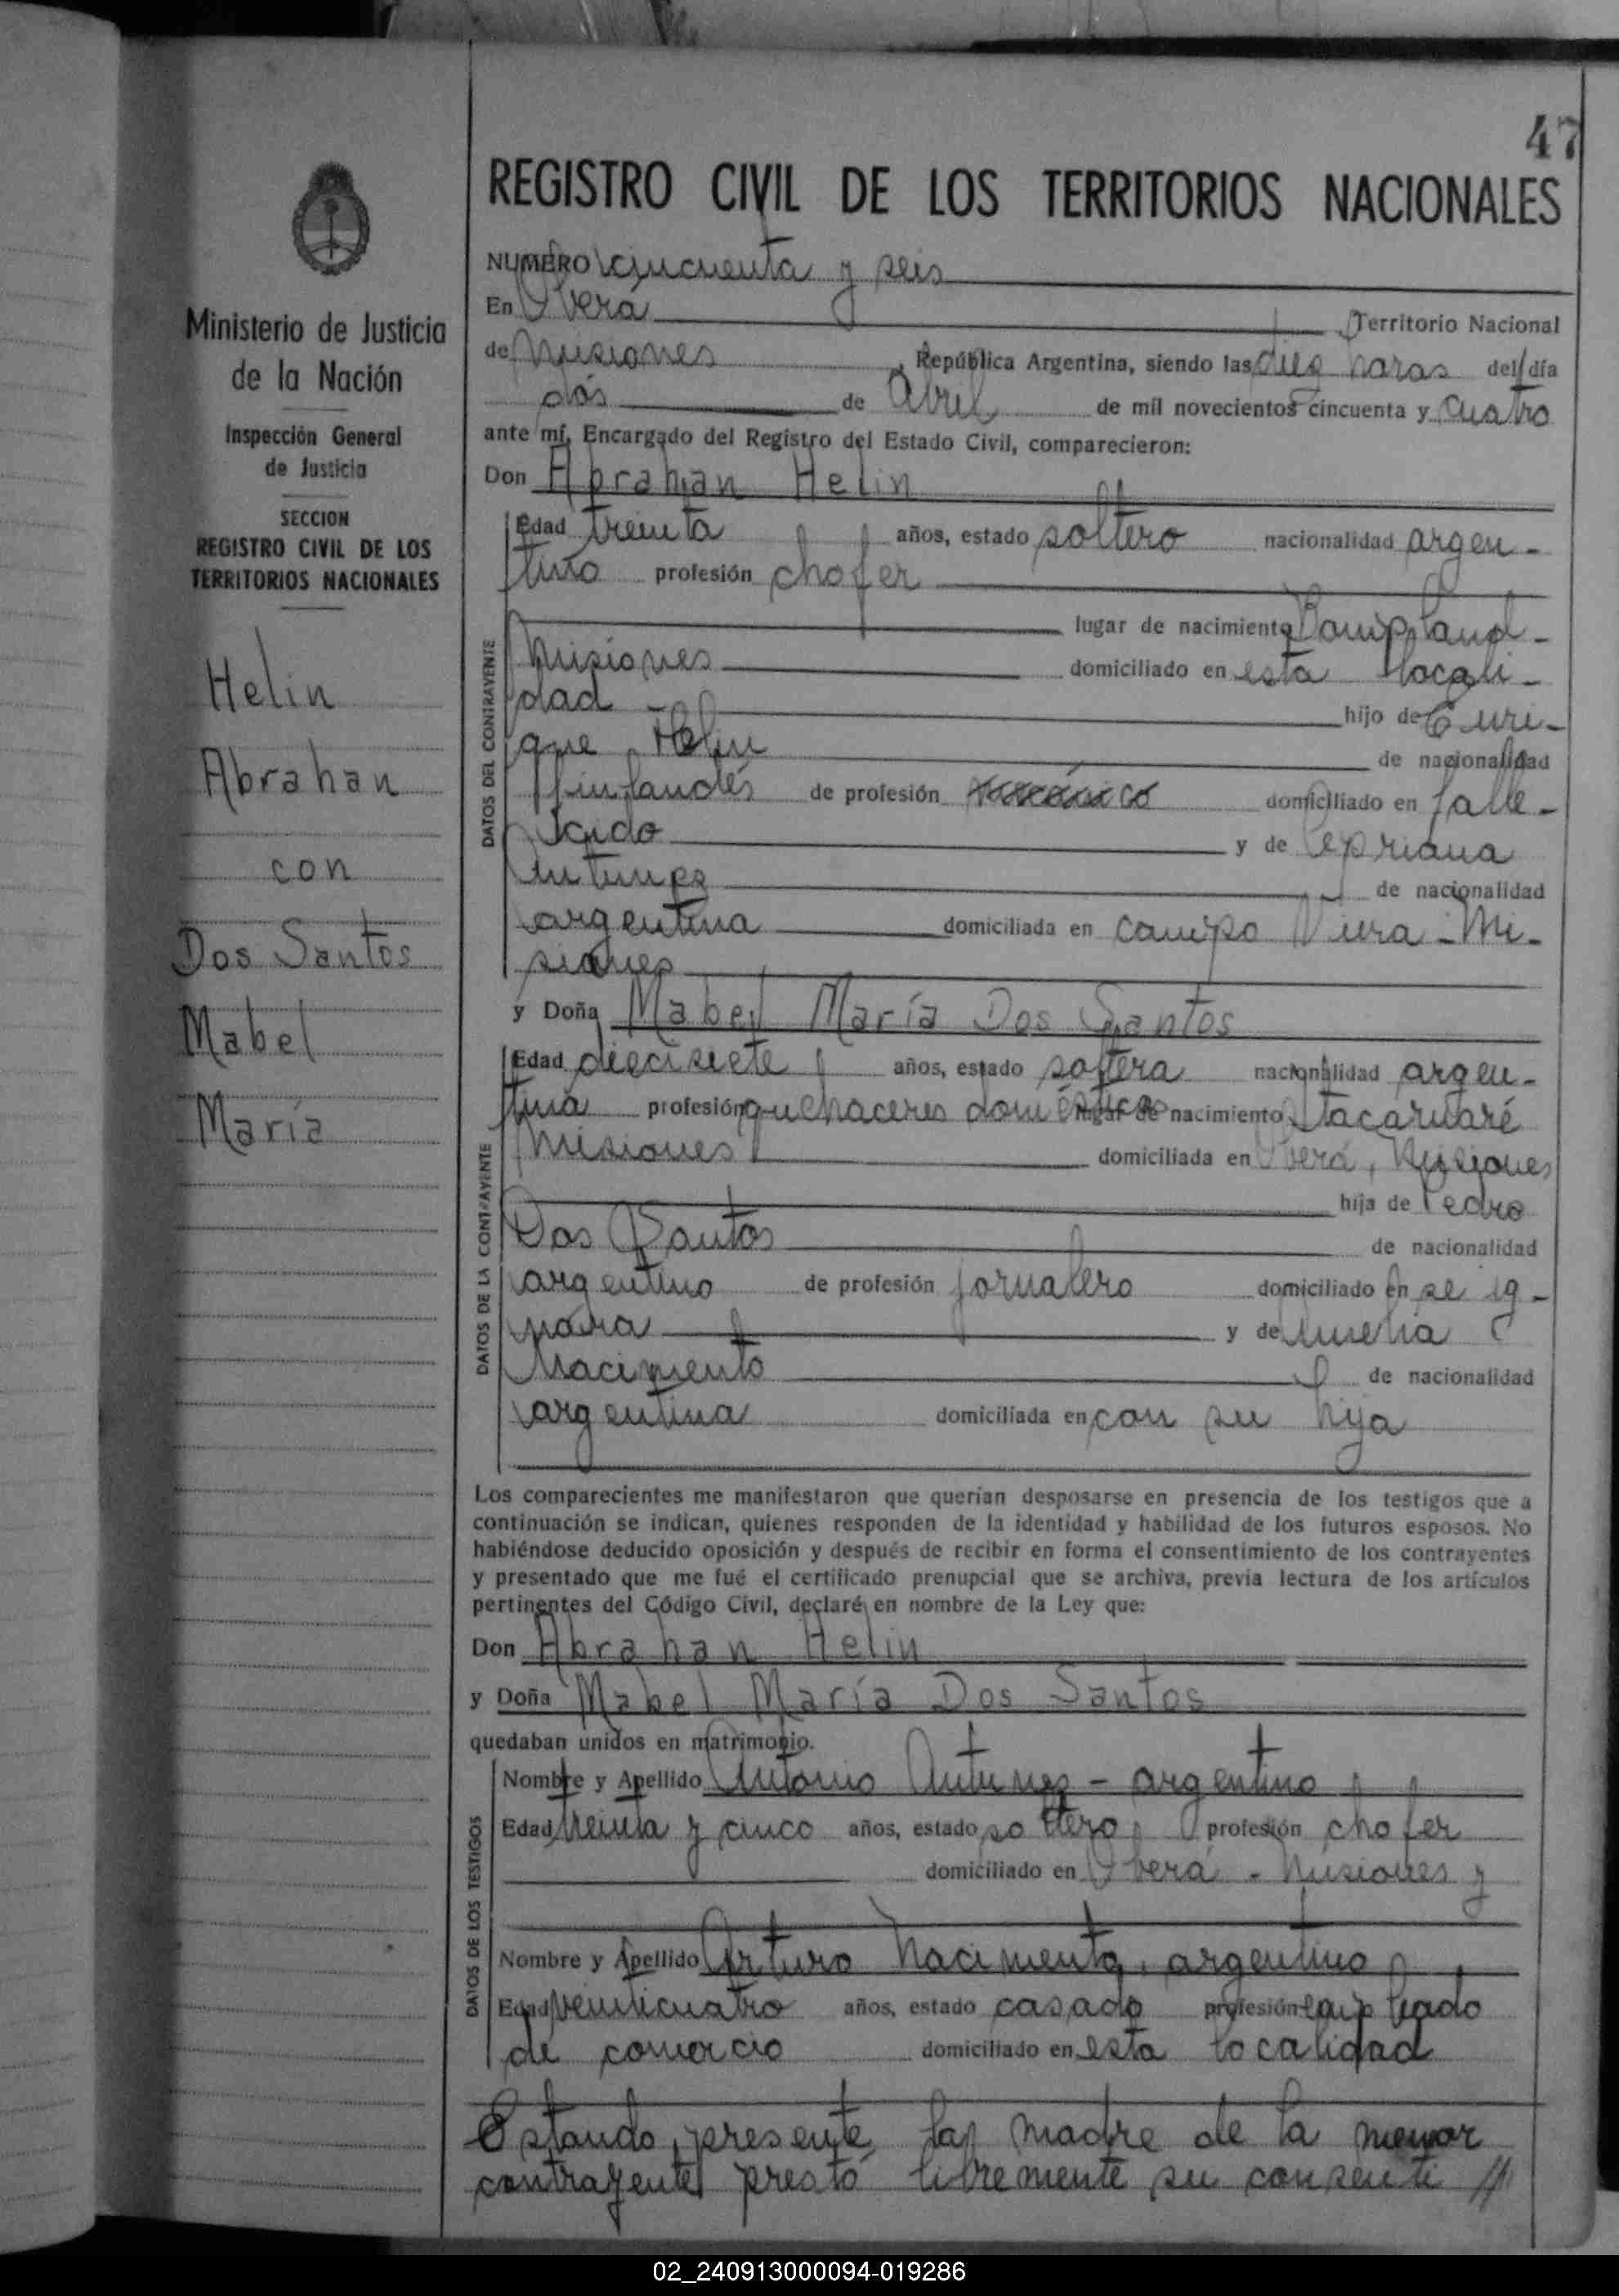 47
REGISTRO CIVIL DE LOS TERRITORIOS NACIONALES
Ministerio de Justicia
de la Nación
Inspección General
de Justicia
SECCION
REGISTRO CIVIL DE LOS
TERRITORIOS NACIONALES
Helin
Abrahan
con
Dos Santos
Mabel
María
NUMERO cincuenta y seis
En Oberá Territorio Nacional
de Misiones, República Argentina, siendo las diez horas del día
dos de Abril de mil novecientos cincuenta y cuatro
ante mí, Encargado del Registro del Estado Civil, comparecieron:
Don Abrahan Helin
DATOS DEL CONTRAYENTE
Edad treinta años, estado soltero nacionalidad argen-
tino profesión chofer
lugar de nacimiento Bompland-
Misiones domiciliado en esta locali-
dad hijo de Enri-
que Helin de nacionalidad
finlandés de profesión domiciliado en falle-
cido y de
Antunes de nacionalidad
argentina domiciliada en campo Viera - Mi-
siones
y Doña Mabel María Dos Santos
DATOS DE LA CONTRAYENTE
Edad diecisiete años, estado soltera nacionalidad argen-
tina profesión quehaceres domésticos lugar de nacimiento Itacaruaré
Misiones domiciliada en Oberá, Misiones
hija de Pedro
Dos Santos de nacionalidad
argentino de profesión jornalero domiciliado en se ig-
nora y de Amelia
Nacimento de nacionalidad
argentina domiciliada en con su hija
Los comparecientes me manifestaron que querían desposarse en presencia de los testigos que a
continuación se indican, quienes responden de la identidad y habilidad de los futuros esposos. No
habiéndose deducido oposición y después de recibir en forma el consentimiento de los contrayentes
y presentado que me fué el certificado prenupcial que se archiva, previa lectura de los artículos
pertinentes del Código Civil, declaré en nombre de la Ley que:
Don Abrahan Helin
y Doña Mabel María Dos Santos
quedaban unidos en matrimonio.
DATOS DE LOS TESTIGOS
Nombre y Apellido Antonio Antunes - argentino
Edad treinta y cinco años, estado soltero profesión chofer
domiciliado en Oberá - Misiones y
Nombre y Apellido Arturo Nacimento, argentino
Edad veinticuatro años, estado casado profesión empleado
de comercio domiciliado en esta localidad
Estando presente la madre de la menor
contrayente prestó libremente su consenti //
02_240913000094-019286